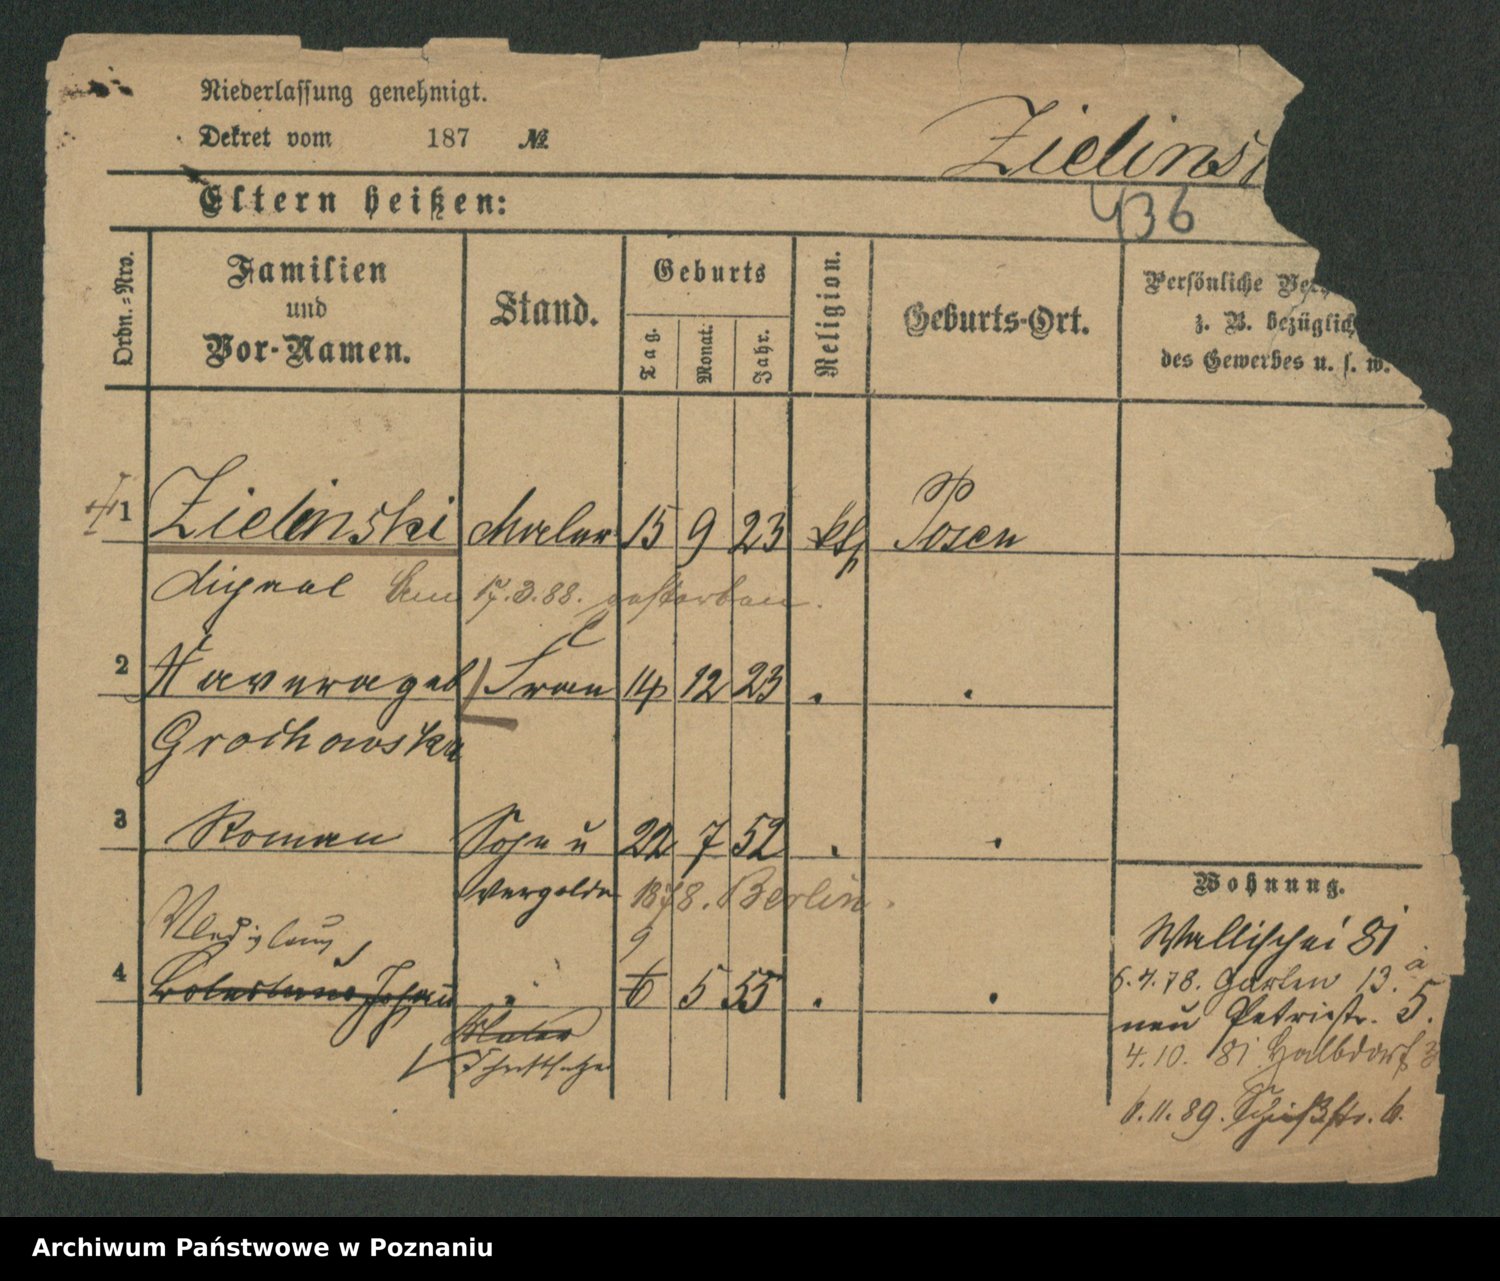 Niederlassung genehmigt.
Dekret vom 187 №
Zielinsk
436
Eltern heißen:
Ordn.-Nro.
Familien
und
Vor-Namen.
Stand.
Geburts
Tag.
Monat.
Jahr.
Religion.
Geburts-Ort.
Persönliche Ver
z. B. bezüglich
des Gewerbes u. s. w.
1 Zielinski Maler 15 9 23 kth Posen
17.3.88. gestorben.
2 Frau 14 12 23 . .
Grochowska
3 Roman Sohn u 22 7 52 . .
Vergolder 1878. Berlin.
Wohnung.
Wladislaus 9
Wallischei 81
4 Boleslaus Johann . 6 5 55 . .
6.4.78. Garten 13.a
neu Petristr. 5.
Maler
4.10.81. Halbdorf 3
Schriftsetzer
6.11.89. Schießstr. 6.
Archiwum Państwowe w Poznaniu